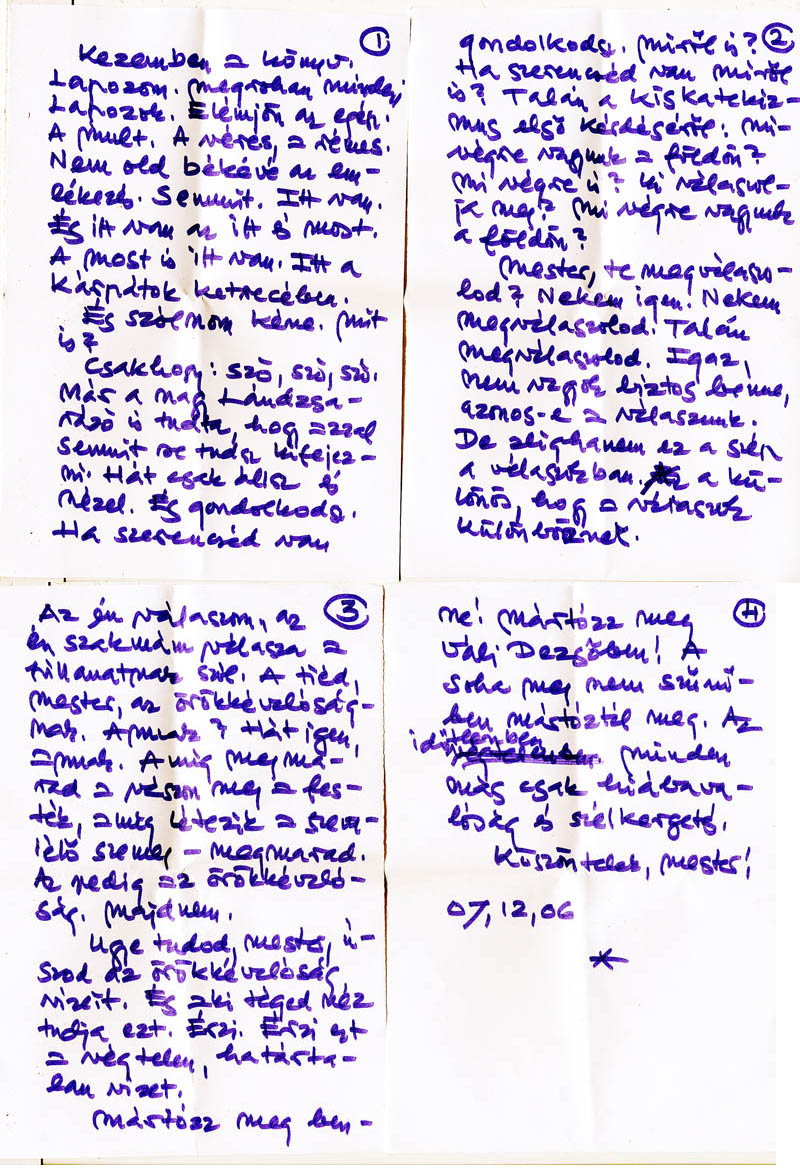 1
Kezemben a könyv.
Lapozom. Megrohan minden,
Lapozok. Elémjön az egész.
A mult. A véres, a rémes.
Nem old békévé az em-
lékezés. Semmit. Itt van.
És itt van az itt és most.
A most is itt van. Itt a
Kárpátok ketrecében.
És szólnom kéne. Mit
is?
Csakhogy: szó, szó, szó.
Már a nagy Lándzsa-
rázó is tudta, hogy azzal
semmit se tudsz kifejez-
ni. Hát csak állsz és
nézel. És gondolkodsz.
Ha szerencséd van
2
gondolkodsz. Miről is?
Ha szerencséd van miről
is? Talán a kiskatekiz-
mus első kérdéséről: mi-
végre vagyunk a földön?
Mi végre is? Ki válaszol-
ja meg? Mi végre vagyunk
a földön?
Mester, te megválaszo-
lod? Nekem igen. Nekem
megválaszolod. Talán
megválaszolod. Igaz,
nem vagyok biztos benne,
azonos-e a válaszunk.
De alighanem ez a szép
a válaszokban. Az a kü-
lönös, hogy a válaszok
különböznek.
3
Az én válaszom, az
én szakmám válasza a
pillanatnak szól. A tiéd,
mester, az örökkévalóság-
nak. Annak? Hát igen,
annak. Amíg megma-
rad a vászon meg a fes-
ték, amíg létezik a
szem – megmarad.
Az pedig az örökkévaló-
ság. Majdnem.
Ugye tudod, mester, ú-
szod az örökkévalóság
vizeit. És aki téged néz
tudja ezt. Érzi. Érzi ezt
a végtelen, határta-
lan vizet.
Mártózz meg ben-
4
ne! Mártózz meg
Váli Dezsőben! A
soha meg nem szűnő-
ben mártóztál meg. Az
időtlenben
végtelenben. Minden
más csak hiábava-
lóság és szélkergető.
Köszöntelek, mester!
07,12,06